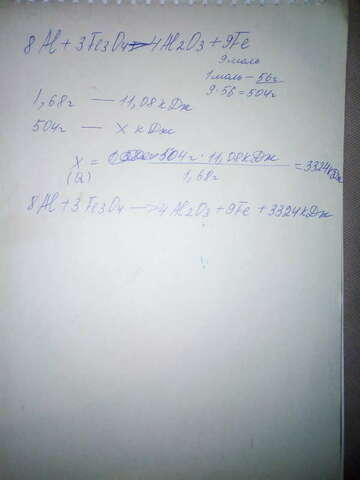 8Al + 3Fe3O4 → 4Al2O3 + 9Fe
9 моль
1 моль - 56г
9·56 = 504г
1,68г — 11,08 кДж
504г — x кДж
x = 504г · 11,08 кДж / 1,68г = 3324 кДж
(Q)
8Al + 3Fe3O4 → 4Al2O3 + 9Fe + 3324 кДж